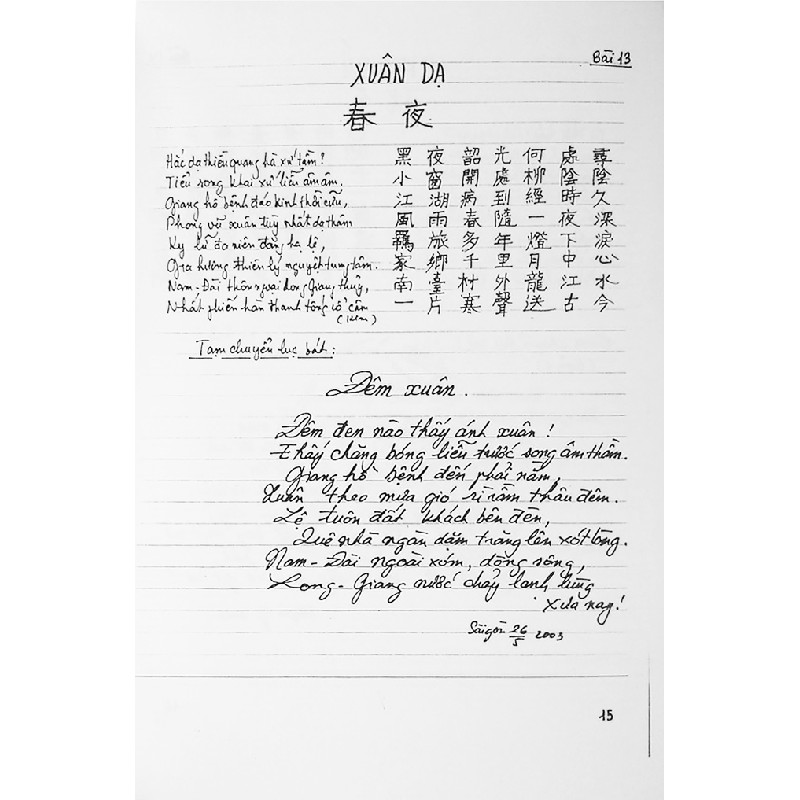 Bài 13
XUÂN DẠ
春夜
Hắc dạ thiều quang hà xứ tầm?
Tiểu song khai xứ liễu âm âm.
Giang hồ bệnh đáo kinh thời cửu,
Phong vũ xuân tùy nhất dạ thâm
Ky lữ đa niên đăng hạ lệ,
Gia hương thiên lý nguyệt trung tâm.
Nam-Đài thôn ngoại Long Giang thủy,
Nhất phiến hàn thanh tống cổ câm
(kim)
黑夜韶光何處尋
小窗開處柳陰陰
江湖病到經時久
風雨春隨一夜深
羈旅多年燈下淚
家鄉千里月中心
南臺村外龍江水
一片寒聲送古今
Tạm chuyển lục bát:
Đêm xuân.
Đêm đen nào thấy ánh xuân!
Thấy chăng bóng liễu trước song âm thầm.
Giang hồ bệnh đến phải nằm,
Xuân theo mưa gió rì rầm thâu đêm.
Lệ tuôn đất khách bên đèn,
Quê nhà ngàn dặm trăng lên xót lòng.
Nam-Đài ngoài xóm, dòng sông,
Long-Giang nước chảy lạnh lùng
Xưa nay!
Sàigòn 26/5 2003
15